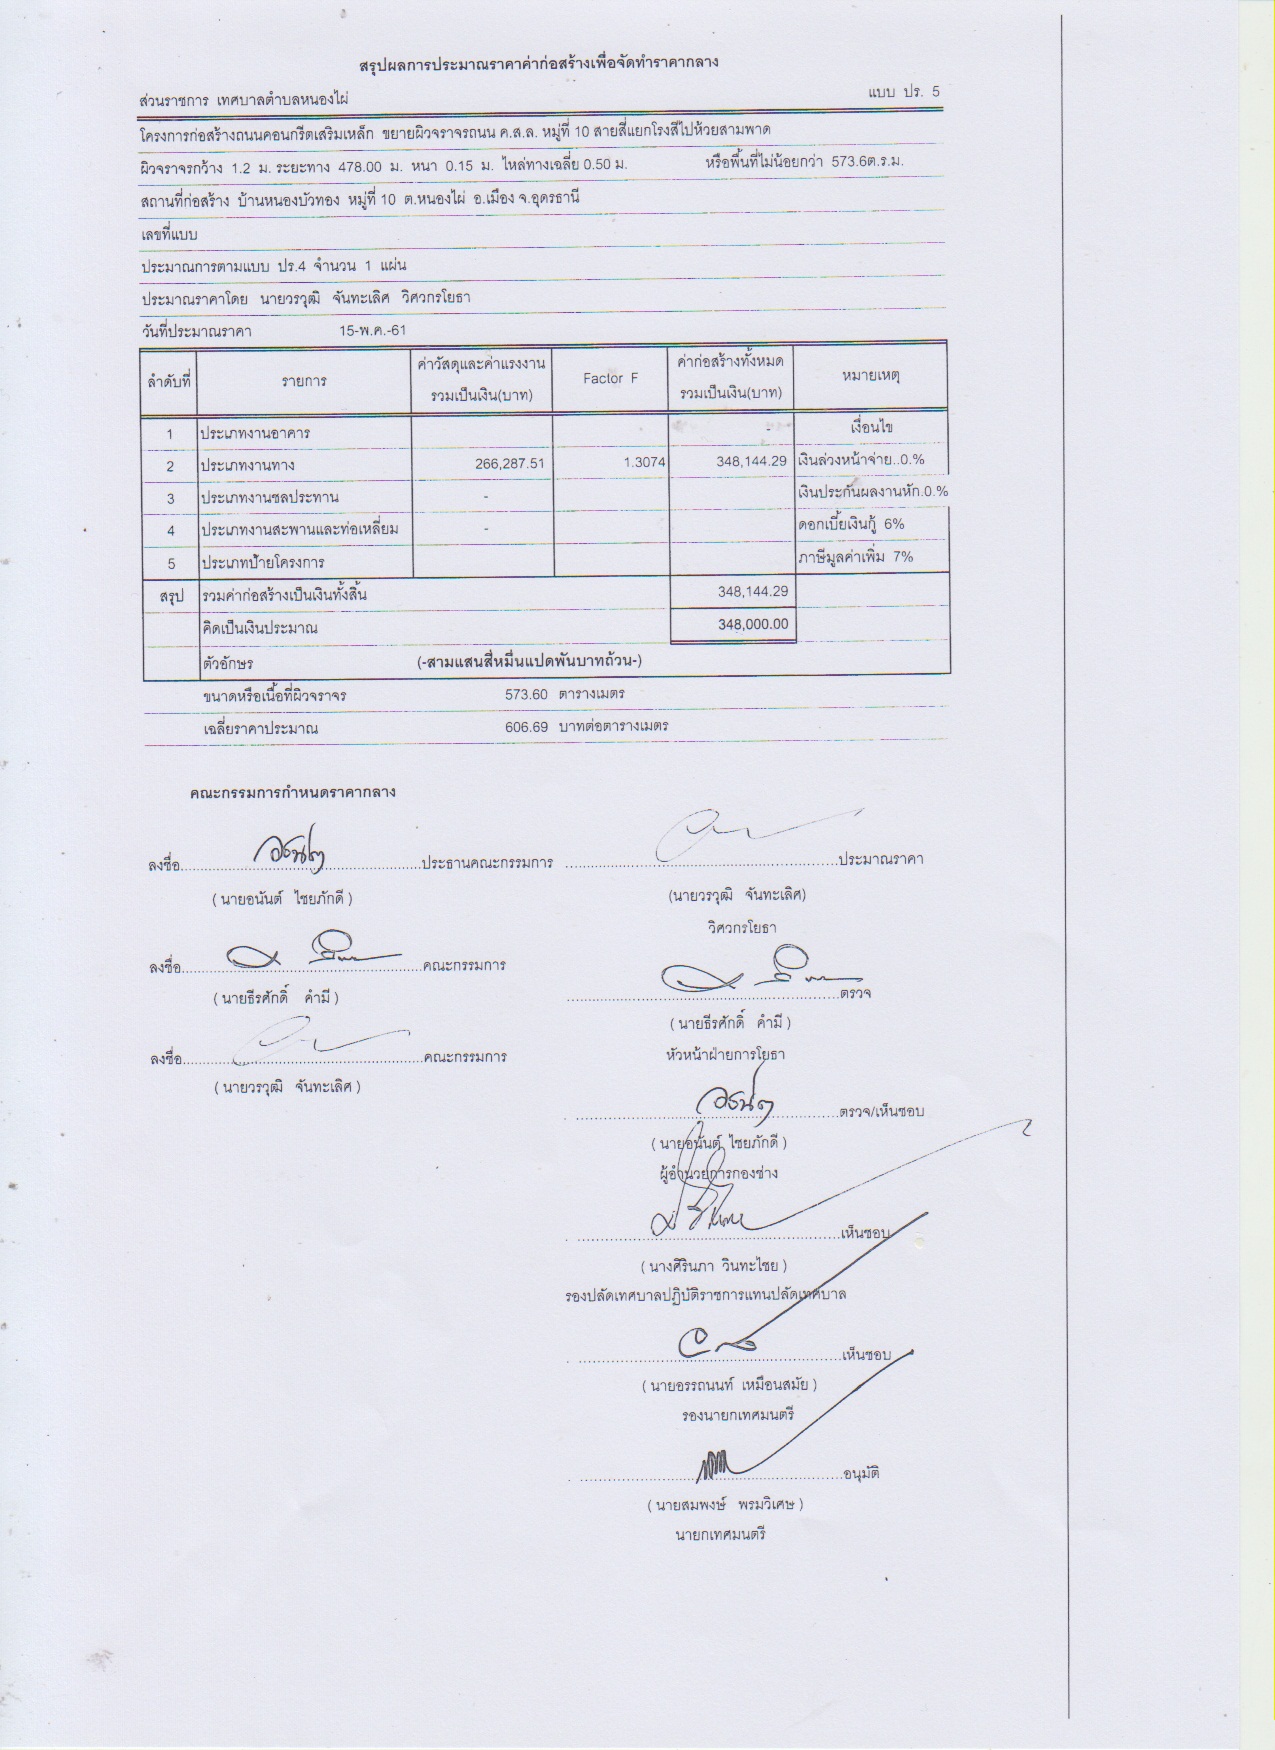 สรุปผลการประมาณราคาค่าก่อสร้างเพื่อจัดทำราคากลาง
ส่วนราชการ เทศบาลตำบลหนองไผ่ แบบ ปร. 5
โครงการก่อสร้างถนนคอนกรีตเสริมเหล็ก ขยายผิวจราจรถนน ค.ส.ล. หมู่ที่ 10 สายสี่แยกโรงสีไปห้วยสามพาด
ผิวจราจรกว้าง 1.2 ม. ระยะทาง 478.00 ม. หนา 0.15 ม. ไหล่ทางเฉลี่ย 0.50 ม. หรือพื้นที่ไม่น้อยกว่า 573.6ต.ร.ม.
สถานที่ก่อสร้าง บ้านหนองบัวทอง หมู่ที่ 10 ต.หนองไผ่ อ.เมือง จ.อุดรธานี
เลขที่แบบ
ประมาณการตามแบบ ปร.4 จำนวน 1 แผ่น
ประมาณราคาโดย นายวรวุฒิ จันทะเลิศ วิศวกรโยธา
วันที่ประมาณราคา 15-พ.ค.-61
ลำดับที่ รายการ ค่าวัสดุและค่าแรงงาน รวมเป็นเงิน(บาท) Factor F ค่าก่อสร้างทั้งหมด รวมเป็นเงิน(บาท) หมายเหตุ
1 ประเภทงานอาคาร - เงื่อนไข
2 ประเภทงานทาง 266,287.51 1.3074 348,144.29 เงินล่วงหน้าจ่าย..0.%
3 ประเภทงานชลประทาน - เงินประกันผลงานหัก.0.%
4 ประเภทงานสะพานและท่อเหลี่ยม - ดอกเบี้ยเงินกู้ 6%
5 ประเภทป้ายโครงการ ภาษีมูลค่าเพิ่ม 7%
สรุป รวมค่าก่อสร้างเป็นเงินทั้งสิ้น 348,144.29
คิดเป็นเงินประมาณ 348,000.00
ตัวอักษร (-สามแสนสี่หมื่นแปดพันบาทถ้วน-)
ขนาดหรือเนื้อที่ผิวจราจร 573.60 ตารางเมตร
เฉลี่ยราคาประมาณ 606.69 บาทต่อตารางเมตร
คณะกรรมการกำหนดราคากลาง
ลงชื่อ..........ประธานคณะกรรมการ ..........ประมาณราคา
( นายอนันต์ ไชยภักดี ) (นายวรวุฒิ จันทะเลิศ)
วิศวกรโยธา
ลงชื่อ..........คณะกรรมการ ..........ตรวจ
( นายธีรศักดิ์ คำมี ) ( นายธีรศักดิ์ คำมี )
หัวหน้าฝ่ายการโยธา
ลงชื่อ..........คณะกรรมการ
( นายวรวุฒิ จันทะเลิศ )
..........ตรวจ/เห็นชอบ
( นายอนันต์ ไชยภักดี )
ผู้อำนวยการกองช่าง
..........เห็นชอบ
( นางศิรินภา วินทะไชย )
รองปลัดเทศบาลปฏิบัติราชการแทนปลัดเทศบาล
..........เห็นชอบ
( นายอรรถนนท์ เหมือนสมัย )
รองนายกเทศมนตรี
..........อนุมัติ
( นายสมพงษ์ พรมวิเศษ )
นายกเทศมนตรี